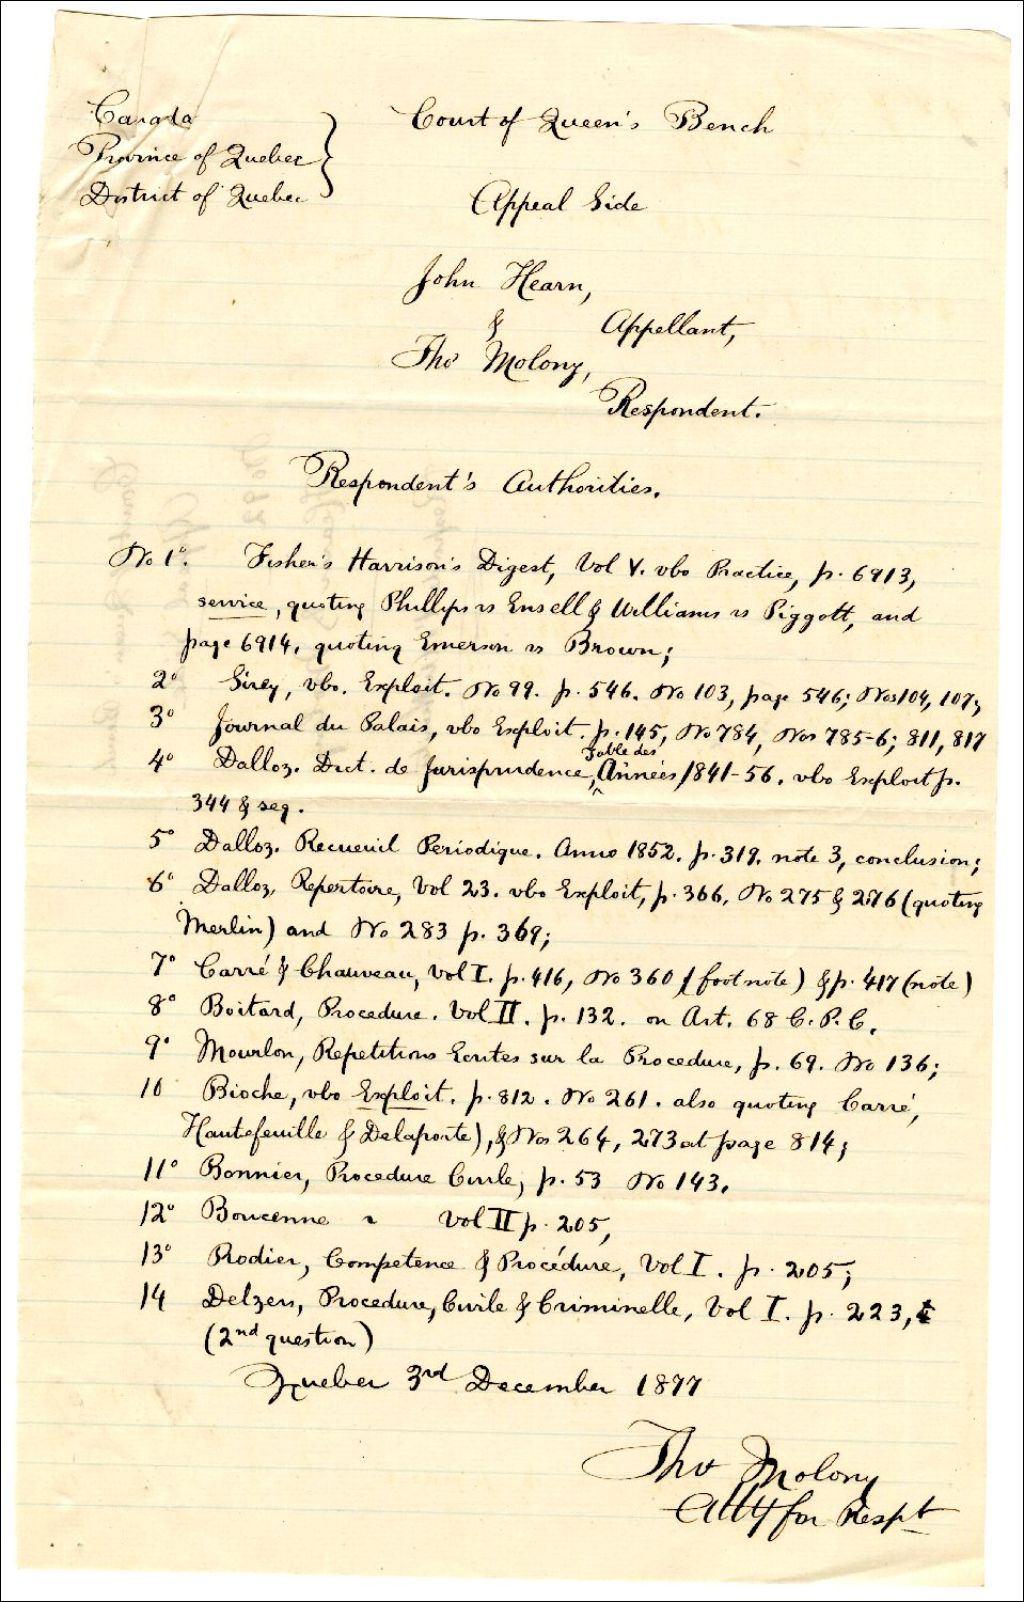 Canada
Province of Quebec
District of Quebec
Court of Queen's Bench
Appeal Side
John Hearn,
& Appellant,
Tho Molony,
Respondent.
Respondent's Authorities.
No 1° Fisher's Harrison's Digest, Vol V. vbo Practice, p. 6913,
service, quoting Phillips vs Ensell & Williams vs Piggott, and
page 6914, quoting Emerson vs Brown;
2° Sirey, vbo. Exploit. No 99. p. 546. No 103, page 546; Nos 104, 107;
3° Journal du Palais, vbo Exploit. p. 145, No 784, Nos 785-6; 811, 817
4° Dalloz. Dict. de Jurisprudence, Table des Années 1841-56. vbo Exploit p.
344 & seq.
5° Dalloz. Recueuil Periodique. Anno 1852. p. 319. note 3, conclusion;
6° Dalloz, Repertoire, Vol 23. vbo Exploit, p. 366, No 275 & 276 (quoting
Merlin) and No 283 p. 369;
7° Carré & Chauveau, Vol I. p. 416, No 360 (foot note) & p. 417 (note)
8° Boitard, Procedure. Vol II. p. 132. on Art. 68 C. P. C.
9° Mourlon, Repetitions Ecrites sur la Procedure, p. 69. No 136;
10 Bioche, vbo Exploit. p. 812. No 261. also quoting Carré,
Hautefeuille & Delaporte), & Nos 264, 273 at page 814;
11° Bonnier, Procedure Civile, p. 53 No 143.
12° Boncenne " Vol II p. 205,
13° Rodier, Competence & Procédure, Vol I. p. 205;
14 Delzers, Procedure, Civile & Criminelle, Vol I. p. 223, 4
(2nd question)
Quebec 3rd December 1877
Tho Molony
Atty for Respt